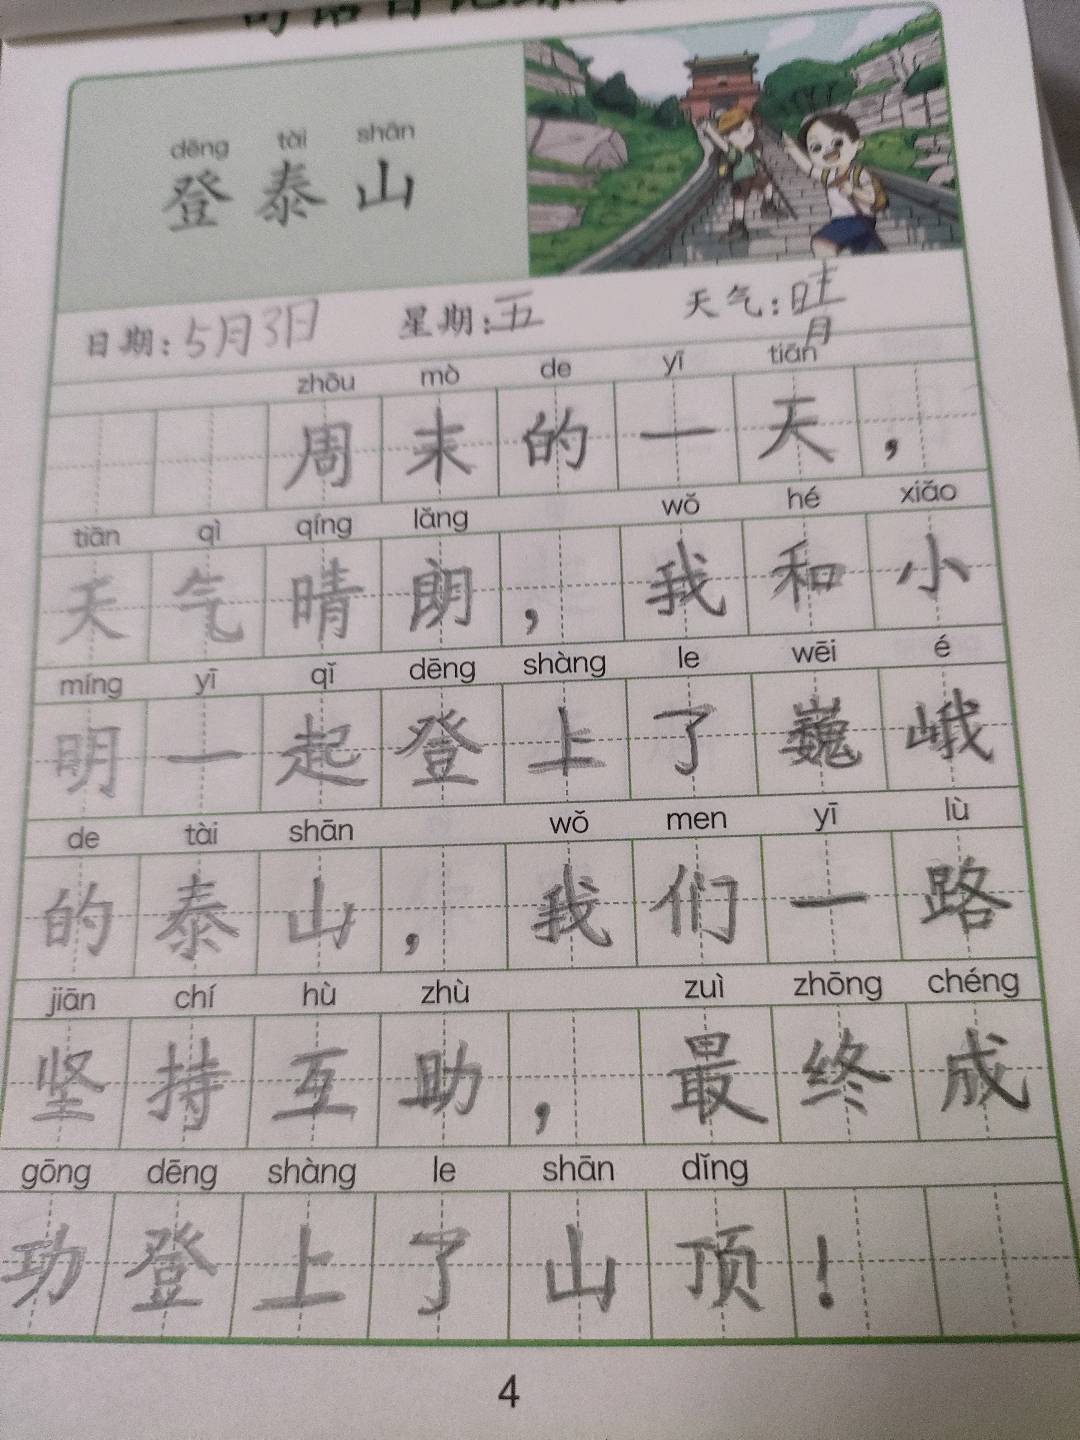 dēng tài shān
登泰山
日期：5月3日 星期：五 天气：晴
zhōu mò de yī tiān
周末的一天，
tiān qì qíng lǎng wǒ hé xiǎo
天气晴朗，我和小
míng yī qǐ dēng shàng le wēi é
明一起登上了巍峨
de tài shān wǒ men yī lù
的泰山，我们一路
jiān chí hù zhù zuì zhōng chéng
坚持互助，最终成
gōng dēng shàng le shān dǐng
功登上了山顶！
4